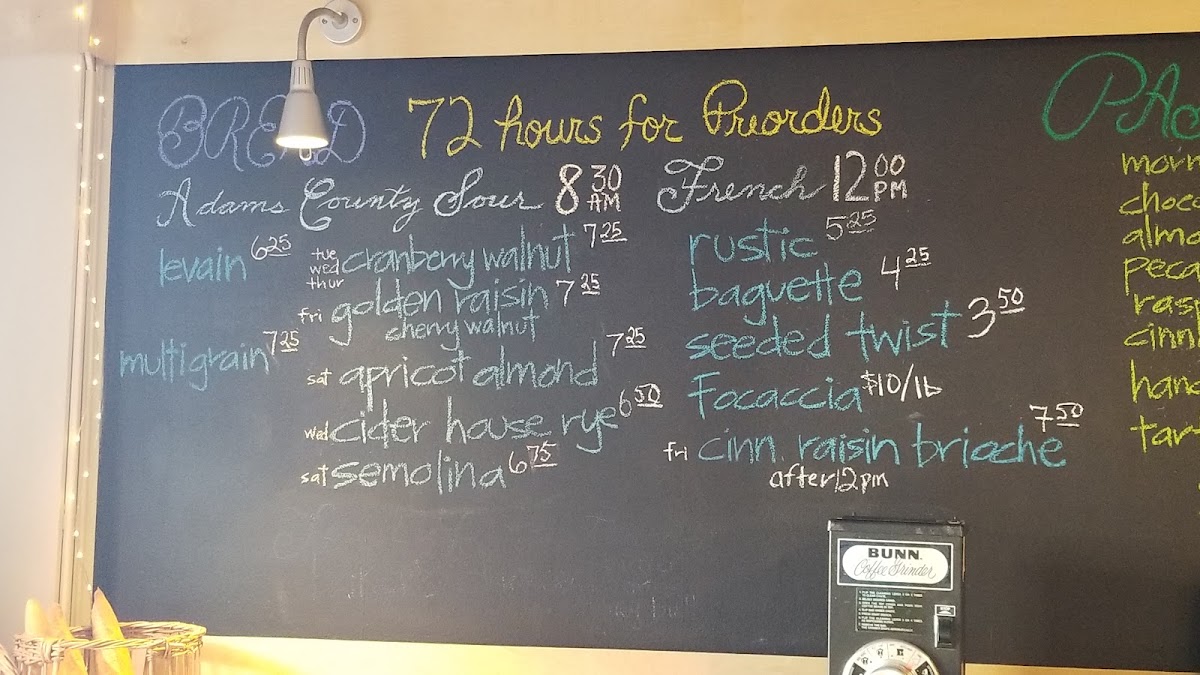 BREAD 72 hours for Preorders
Adams County Sour 8 30 AM
levain 6 25
multigrain 7 25
tue wed thur cranberry walnut 7 25
fri golden raisin 7 25
cherry walnut
sat apricot almond 7 25
wed cider house rye 6 50
sat semolina 6 75
French 12 00 PM
rustic 5 25
baguette 4 25
seeded twist 3 50
Focaccia $10/lb
fri cinn. raisin brioche 7 50
after 12pm
BUNN
Coffee Grinder